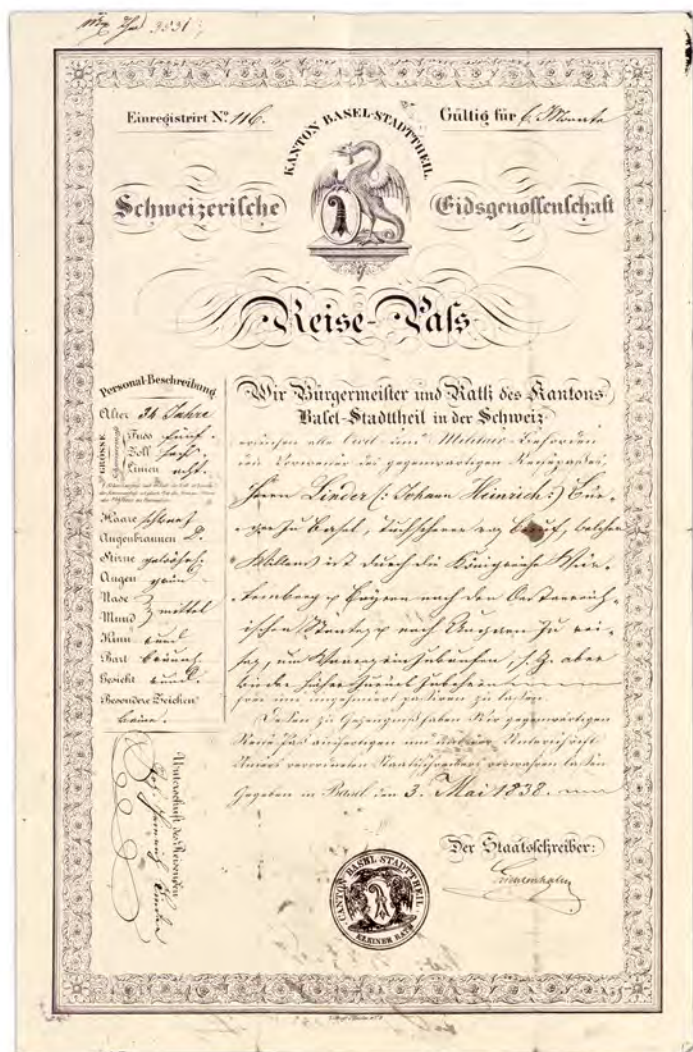 3531
Einregistrirt N.º 116.
Gültig für 6 Monate
KANTON BASEL-STADTTHEIL
Schweizerische Eidsgenossenschaft
Reise-Pass
Personal-Beschreibung
Alter 34 Jahre
GRÖSSE
Fuss fünf.
Zoll sechs.
Linien acht.
Haare schwarz
Augenbraunen D.º
Stirne gewölbt.
Augen grün
Nase
Mund } mittel
Kinn rund
Bart braun
Gesicht rund.
Besondere Zeichen
keine.
Unterschrift des Reisenden
Joh. Heinrich Linder
Wir Bürgermeister und Rath des Kantons
Basel-Stadttheil in der Schweiz
ersuchen alle Civil- und Militair-Behörden
den Vorweiser des gegenwärtigen Reisepasses,
Herrn Linder (: Johann Heinrich :) Bür-
ger zu Basel, Tuchscherer von Beruf, welcher
Willens ist durch die Königreiche Wür-
temberg & Bayern nach den Oesterreich-
ischen Staaten & nach Ungarn zu rei-
sen, um Waaren einzukaufen, s. Z. aber
wieder hieher zurückzukehren
frei und ungehindert passiren zu lassen.
Dessen zu Gezeugniß haben Wir gegenwärtigen
Reise-Paß ausfertigen und mit der Unterschrift
Unsers verordneten Staatsschreibers verwahren lassen
Gegeben in Basel den 3. Mai 1838.
Der Staatsschreiber:
CANTON BASEL STADTTHEIL
KLEINER RATH